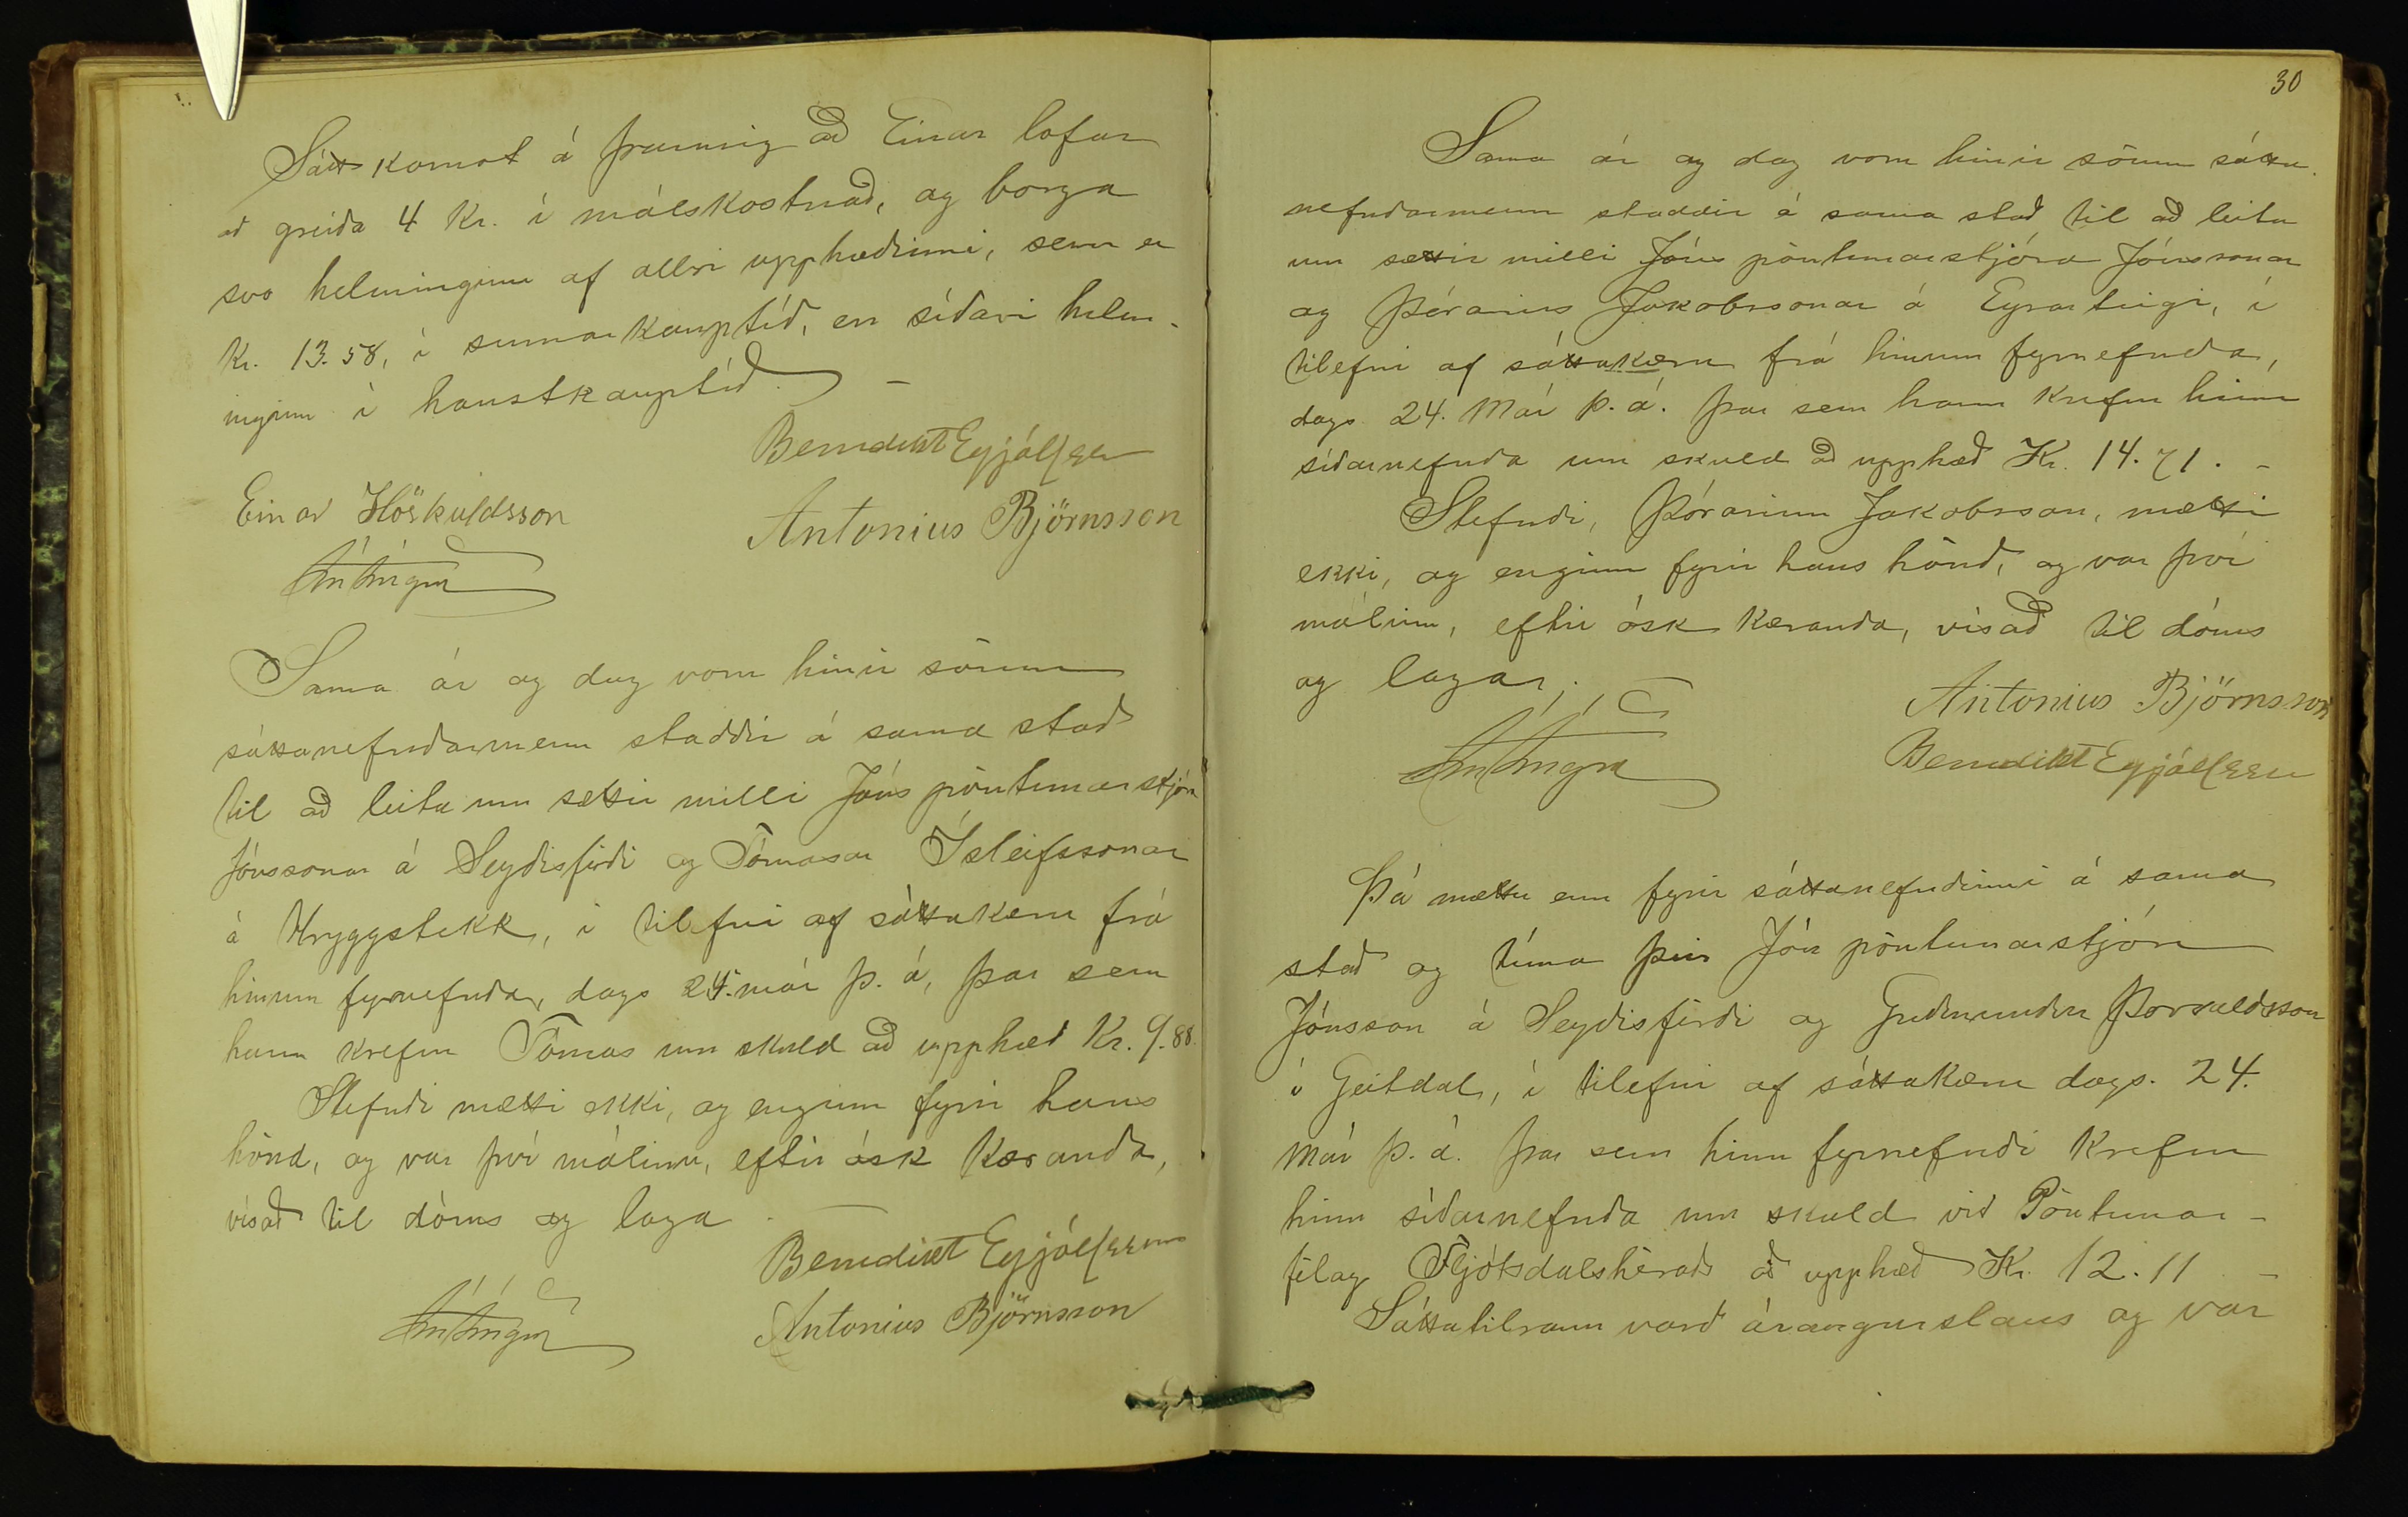 Sátt komst á þannig að Einar lofar
að greiða 4 Kr. í málskostnað, og borga
svo helminginn af allri upphæðinni, sem er
Kr. 13.58, í sumarkauptíð, en síðari helm-
inginn í haustkauptíð. –
Benedikt Eyjólfsson
Einar Höskuldsson
Antonius Björnsson
Sama ár og dag voru hinir sömu
sáttanefndarmenn staddir á sama stað
til að leita um sættir milli Jóns pöntunarstjóra
Jónssonar á Seyðisfirði og Tómasar Ísleifssonar
á Hryggstekk, í tilefni af sáttakæru frá
hinum fyrnefnda, dags 24. maí þ. á, þar sem
hann krefur Tómas um skuld að upphæð Kr. 9.88.
Stefndi mætti ekki, og enginn fyrir hans
hönd, og var því málinu, eftir ósk kæranda,
vísað til dóms og laga.
Benedikt Eyjólfsson
Antonius Björnsson
30
Sama ár og dag voru hinir sömu sátta
nefndarmenn staddir á sama stað til að leita
um sættir milli Jóns pöntunarstjóra Jónssonar
og Þórarins Jakobssonar á Eyrarteigi, í
tilefni af sáttakæru frá hinum fyrnefnda,
dags. 24. Maí þ. á. þar sem hann krefur hinn
síðarnefnda um skuld að upphæð Kr. 14.71. –
Stefndi, Þórarinn Jakobsson, mætti
ekki, og enginn fyrir hans hönd, og var því
málinu, eftir ósk kæranda, vísað til dóms
og lagar.
Antonius Björnsson
Benedikt Eyjólfsson
Þá mættu enn fyrir sáttanefndinni á sama
stað og tíma þeir Jón pöntunarstjóri
Jónsson á Seyðisfirði og Guðmundur Þorvaldsson
í Geitdal, í tilefni af sáttakæru dags. 24.
Maí þ. á. þar sem hinn fyrnefndi krefur
hinn síðarnefnda um skuld við Pöntunar-
félag Fljótsdalshéraðs að upphæð Kr. 12.11 –
Sáttatilraun varð árangurslaus og var